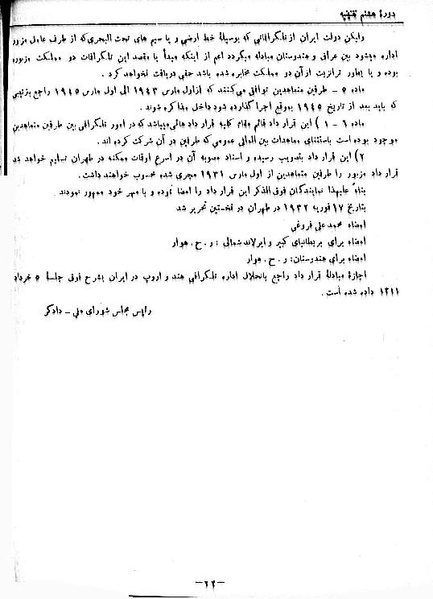 دورهٔ هشتم تقنینیه
ولیکن دولت ایران از تلگرافاتی که بوسیلهٔ خط ارضی و یا سیم های تحت البحری که از طرف عامل مزبور
اداره میشود بین عراق و هندوستان مبادله میگردد اعم از اینکه مبدأ یا مقصد این تلگرافات دو مملکت مزبوره
بوده و یا بطور ترانزیت از آن دو مملکت مخابره شده باشد حقی دریافت نخواهد کرد .
ماده ۵ - طرفین متعاهدین توافق می‌کنند که از اول مارس ۱۹۴۳ الی اول مارس ۱۹۴۵ راجع بترتیبی
که باید بعد از تاریخ ۱۹۴۵ بموقع اجرا گذارده شود داخل مذاکره شوند .
ماده ۶ - ۱ ) این قرار داد قائم مقام کلیه قرار داد هائی میباشد که در امور تلگرافی بین طرفین متعاهدین
موجود بوده است باستثنای معاهدات بین المللی عمومی که طرفین در آن شرکت کرده اند .
۲ ) این قرار داد بتصویب رسیده و اسناد مصوبه آن در اسرع اوقات ممکنه در طهران تسلیم خواهد شد
قرار داد مزبور را طرفین متعاهدین از اول مارس ۱۹۳۱ مجری شده محسوب خواهند داشت .
بناءً علیهذا نمایندگان فوق الذکر این قرار داد را امضا نموده و با مهر خود ممهور نمودند
بتاریخ ۱۷ فوریه ۱۹۳۲ در طهران در نسختین تحریر شد
امضاء محمد علی فروغی
امضاء برای بریطانیای کبیر و ایرلاند شمالی : ر . ح . هوار
امضاء برای هندوستان : ر . ح . هوار
اجازهٔ مبادلهٔ قرار داد راجع بانحلال اداره تلگرافی هند و اروپ در ایران بشرح فوق جلسهٔ ۵ خرداد
۱۳۱۱ داده شده است .
رئیس مجلس شورای ملی - دادگر
-۲۲-